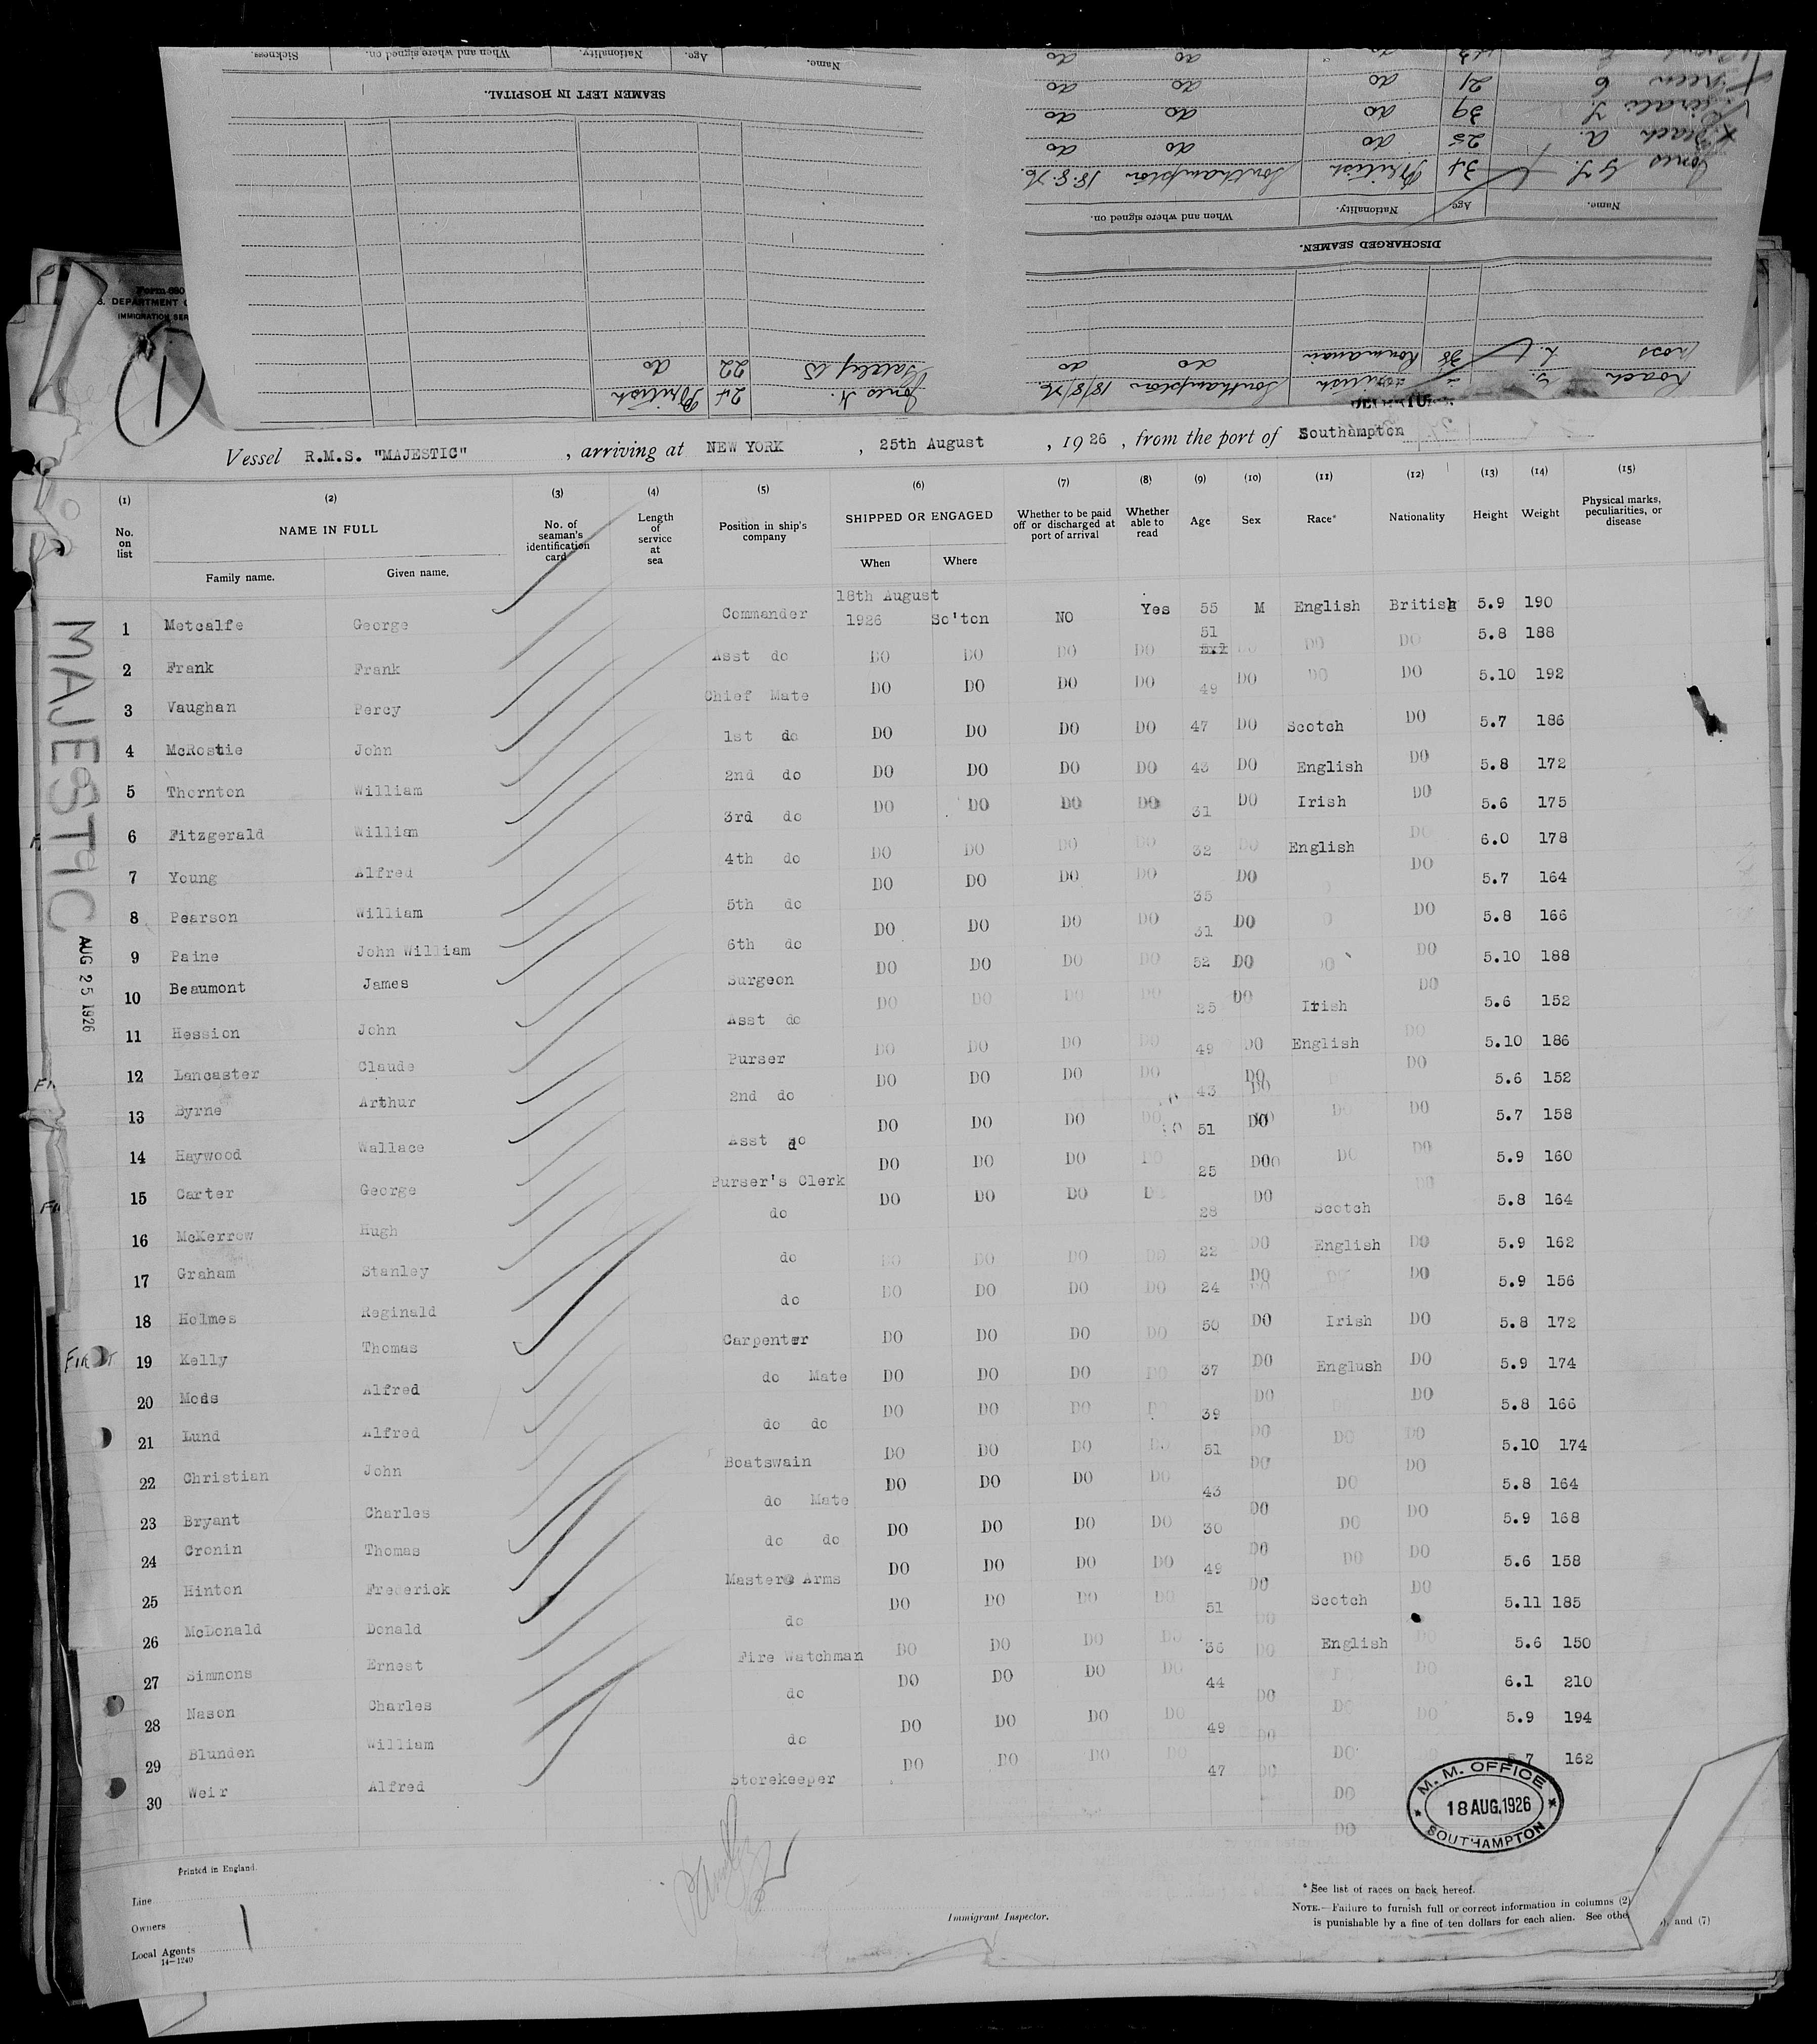 Sickness.
When and where signed on.
Nationality.
Age.
Name.
SEAMEN LEFT IN HOSPITAL.
do do do 21 6
do do do 39
do do do 25 a.
Jones G J 34 British Southampton 18.8.26.
Name. Age. Nationality. When and where signed on.
DISCHARGED SEAMEN.
Ross L 38 Roumanian do do
Roach British Southampton 18/8/26
Jones H. 24 British
22 do
Form 680
DEPARTMENT
IMMIGRATION SER
1
Vessel R.M.S. "MAJESTIC", arriving at NEW YORK, 25th August, 1926, from the port of Southampton
(1) (2) (3) (4) (5) (6) (7) (8) (9) (10) (11) (12) (13) (14) (15)
No. on list
NAME IN FULL
Family name. Given name.
No. of seaman's identification card
Length of service at sea
Position in ship's company
SHIPPED OR ENGAGED
When Where
Whether to be paid off or discharged at port of arrival
Whether able to read
Age
Sex
Race*
Nationality
Height
Weight
Physical marks, peculiarities, or disease
1 Metcalfe George Commander 18th August 1926 So'ton NO Yes 55 M English British 5.9 190
2 Frank Frank Asst do DO DO DO DO 51 DO DO DO 5.8 188
3 Vaughan Percy Chief Mate DO DO DO DO 49 DO DO DO 5.10 192
4 McRostie John 1st do DO DO DO DO 47 DO Scotch DO 5.7 186
5 Thornton William 2nd do DO DO DO DO 43 DO English DO 5.8 172
6 Fitzgerald William 3rd do DO DO DO DO 31 DO Irish DO 5.6 175
7 Young Alfred 4th do DO DO DO DO 32 DO English DO 6.0 178
8 Pearson William 5th do DO DO DO DO 35 DO DO 5.7 164
9 Paine John William 6th do DO DO DO DO 31 DO DO 5.8 166
10 Beaumont James Surgeon DO DO DO DO 52 DO DO DO 5.10 188
11 Hession John Asst do DO DO DO DO 25 DO Irish DO 5.6 152
12 Lancaster Claude Purser DO DO DO DO 49 DO English DO 5.10 186
13 Byrne Arthur 2nd do DO DO DO DO 43 DO DO 5.6 152
14 Haywood Wallace Asst do DO DO DO DO 51 DO DO DO 5.7 158
15 Carter George Purser's Clerk DO DO DO DO 25 DO DO DO 5.9 160
16 McKerrow Hugh do DO DO DO 28 DO Scotch DO 5.8 164
17 Graham Stanley do DO DO DO DO 22 DO English DO 5.9 162
18 Holmes Reginald do DO DO DO DO 24 DO DO DO 5.9 156
19 Kelly Thomas Carpenter DO DO DO DO 50 DO Irish DO 5.8 172
20 Alfred do Mate DO DO DO DO 37 DO Englush DO 5.9 174
21 Lund Alfred do do DO DO DO 39 DO DO 5.8 166
22 Christian John Boatswain DO DO DO DO 51 DO DO DO 5.10 174
23 Bryant Charles do Mate DO DO DO DO 43 DO DO DO 5.8 164
24 Cronin Thomas do do DO DO DO DO 30 DO DO DO 5.9 168
25 Hinton Frederick Master@ Arms DO DO DO DO 49 DO DO DO 5.6 158
26 McDonald Donald do DO DO DO DO 51 DO Scotch DO 5.11 185
27 Simmons Ernest Fire Watchman DO DO DO DO 36 DO English DO 5.6 150
28 Nason Charles do DO DO DO DO 44 DO DO 6.1 210
29 Blunden William do DO DO DO DO 49 DO DO DO 5.9 194
30 Weir Alfred Storekeeper DO DO DO DO 47 DO DO 5.7 162
DO
DO
MAJESTIC
AUG 25 1926
M. M. OFFICE
18 AUG. 1926
SOUTHAMPTON
Printed in England.
Line
Owners
Local Agents
14—1240
Immigrant Inspector.
* See list of races on back hereof.
NOTE.—Failure to furnish full or correct information in columns (2)
is punishable by a fine of ten dollars for each alien. See othe
), and (7)